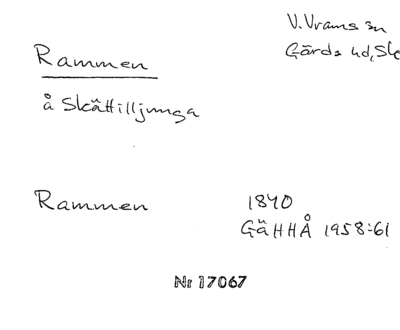 V. Vrams sn
Gärds hd, Sk
Rammen
å Skättilljunga
Rammen
1840
GÄHHÅ 1958:61
Nr 17067